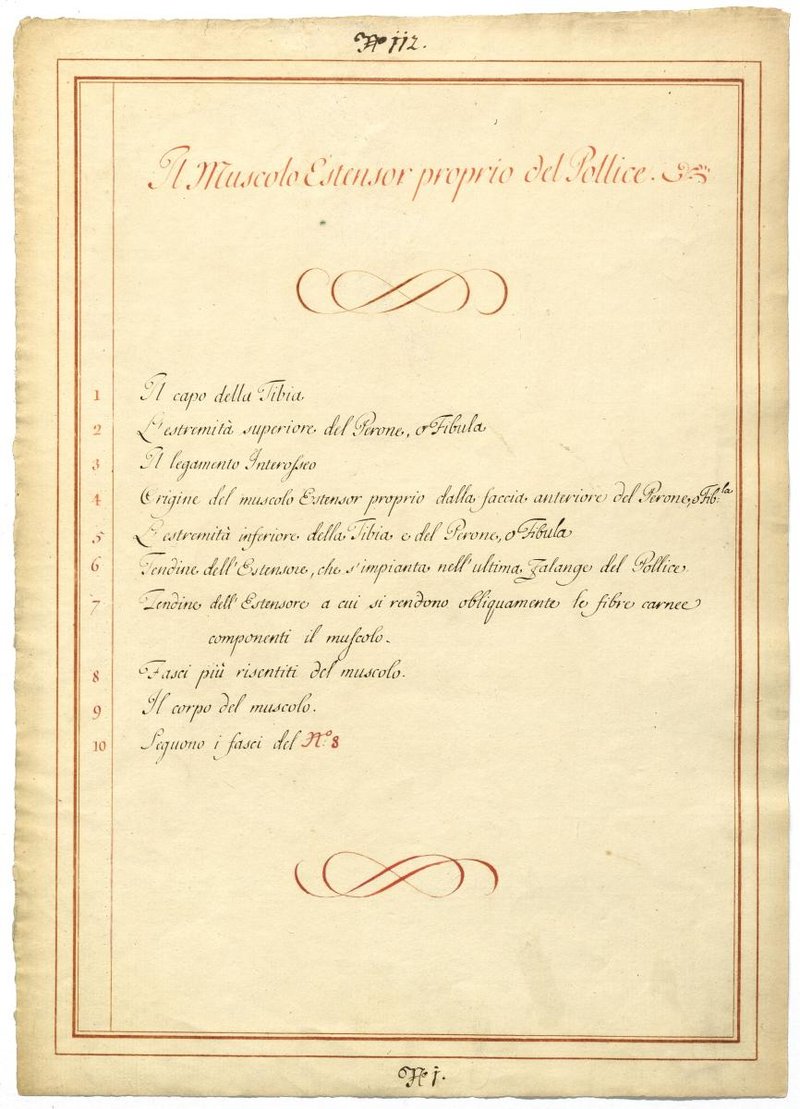 Nº 112.
Il Muscolo Estensor proprio del Pollice.
1 Il capo della Tibia
2 L'estremità superiore del Perone, o Fibula
3 Il legamento Interosseo
4 Origine del muscolo Estensor proprio dalla faccia anteriore del Perone, o Fib:la
5 L'estremità inferiore della Tibia e del Perone, o Fibula
6 Tendine dell'Estensore, che s'impianta nell'ultima Falange del Pollice
7 Tendine dell'Estensore a cui si rendono obliquamente le fibre carnee
componenti il muscolo.
8 Fasci più risentiti del muscolo.
9 Il corpo del muscolo.
10 Seguono i fasci del Nº 8
Nº 1.